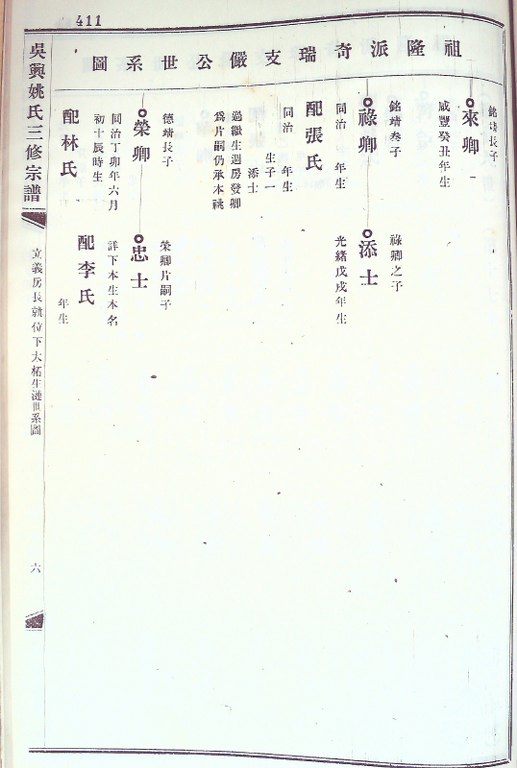 411
祖隆派奇瑞支儼公世系圖
銘靖長子
來卿
咸豐癸丑年生
銘靖叁子
祿卿
同治 年生
配張氏
同治 年生
生子一
添士
過繼生迴房發卿
爲片嗣仍承本祧
祿卿之子
添士
光緒戊戌年生
德靖長子
榮卿
同治丁卯年六月
初十辰時生
配林氏
榮卿片嗣子
忠士
詳下本生本名
配李氏
年生
吳興姚氏三修宗譜
立義房長韓位下大柘生漣世系圖
六